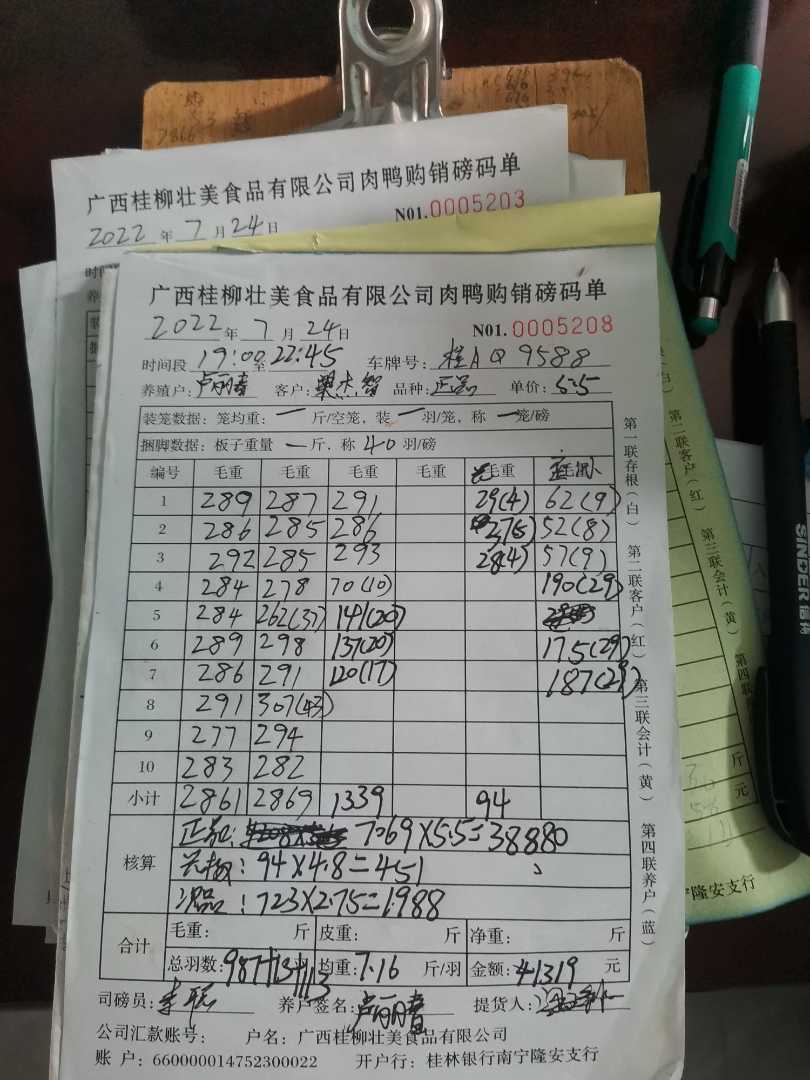 广西桂柳壮美食品有限公司肉鸭购销磅码单
2022年7月24日 N01.0005203
广西桂柳壮美食品有限公司肉鸭购销磅码单
2022年7月24日 N01.0005208
时间段 19:00至22:45 车牌号：桂AQ9588
养殖户：卢丽春 客户：杰智 品种：正品 单价：5.5
装笼数据：笼均重：一斤/空笼，装一羽/笼，称一笼/磅
捆脚数据：板子重量一斤，称40羽/磅
编号 毛重 毛重 毛重 毛重 毛重
1 289 287 291 29(4) 62(9)
2 286 285 286 37(5) 52(8)
3 292 285 293 28(4) 57(9)
4 284 278 70(10) 190(29)
5 284 262(37) 141(20)
6 289 298 137(20) 175(29)
7 286 291 120(17) 187(29)
8 291 307(43)
9 277 294
10 283 282
小计 2861 2869 1339 94
核算
正品: 7069×5.5=38880
94×4.8=451
次品：723×2.75=1988
合计
毛重： 斤 皮重： 斤 净重： 斤
总羽数：987+13+113 羽 均重：7.16 斤/羽 金额：41319 元
司磅员： 养户签名：卢丽春 提货人：
公司汇款账号： 户名：广西桂柳壮美食品有限公司
账 户：660000014752300022 开户行：桂林银行南宁隆安支行
第一联存根（白） 第二联客户（红） 第三联会计（黄） 第四联养户（蓝）
第二联客户（红） 第三联会计（黄）
斤
元
宁隆安支行
SINDER